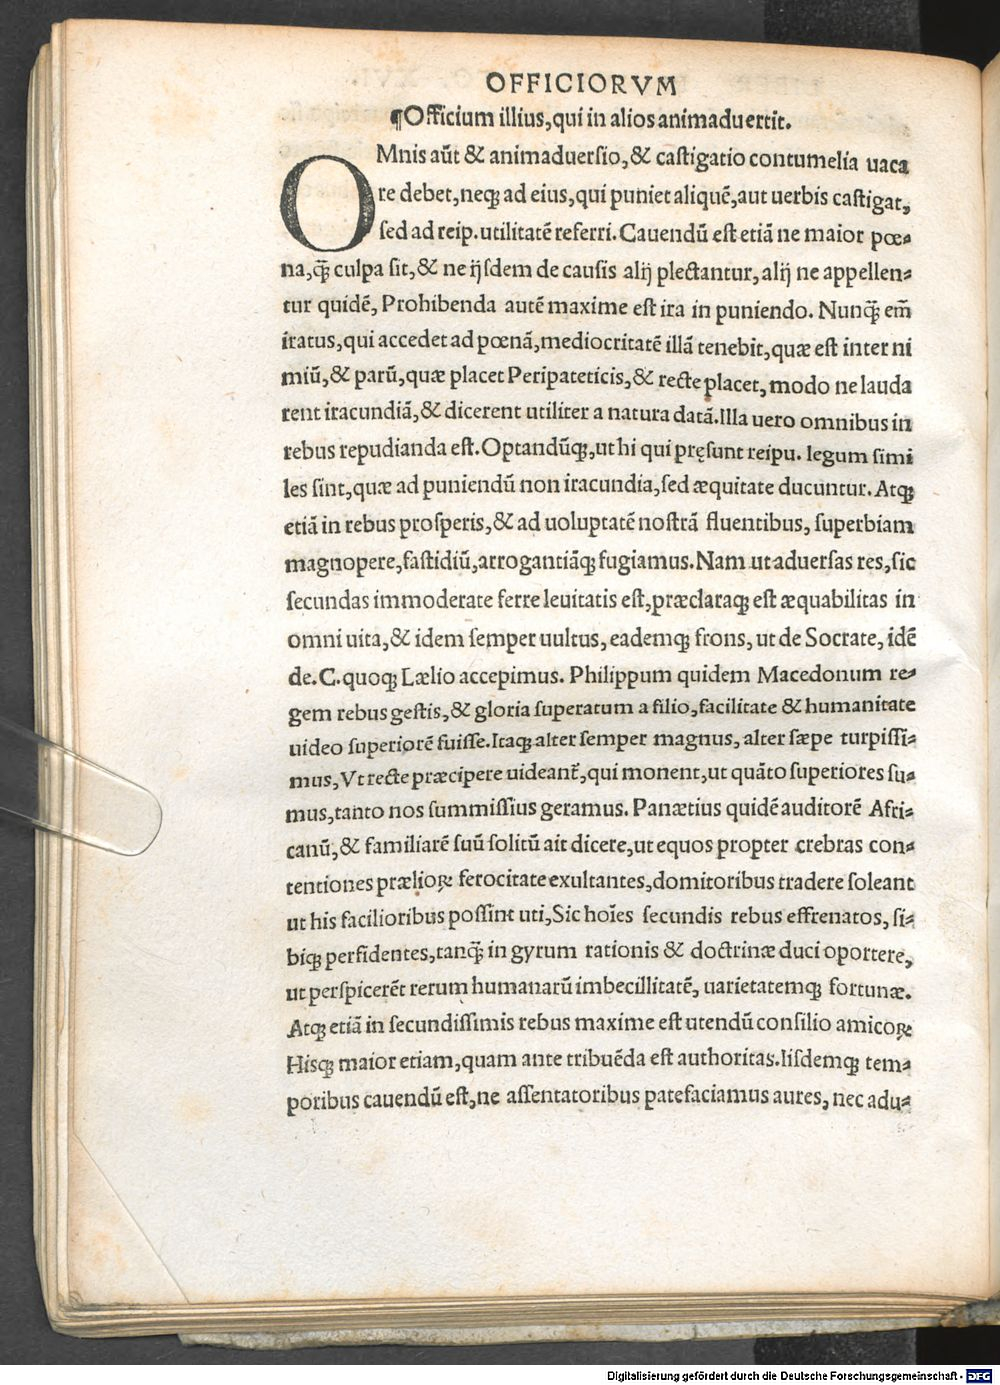 OFFICIORVM
¶Officium illius, qui in alios animaduertit.
OMnis aũt & animaduersio, & castigatio contumelia uaca
re debet, neqꝫ ad eius, qui puniet aliquẽ, aut uerbis castigat,
sed ad reip. utilitatẽ referri. Cauendũ est etiã ne maior pœ-
na, q̃ꝫ culpa sit, & ne ijsdem de causis alij plectantur, alij ne appellen-
tur quidẽ, Prohibenda autẽ maxime est ira in puniendo. Nunq̃ꝫ em̃
iratus, qui accedet ad pœnã, mediocritatẽ illã tenebit, quæ est inter ni
miũ, & parũ, quæ placet Peripateticis, & recte placet, modo ne lauda
rent iracundiã, & dicerent utiliter a natura datã. Illa uero omnibus in
rebus repudianda est. Optandũqꝫ, ut hi qui pręsunt reipu. legum simi
les sint, quæ ad puniendũ non iracundia, sed æquitate ducuntur. Atqꝫ
etiã in rebus prosperis, & ad uoluptatẽ nostrã fluentibus, superbiam
magnopere, fastidiũ, arrogantiãqꝫ fugiamus. Nam ut aduersas res, sic
secundas immoderate ferre leuitatis est, præclaraqꝫ est æquabilitas in
omni uita, & idem semper uultus, eademqꝫ frons, ut de Socrate, idẽ
de. C. quoqꝫ Lælio accepimus. Philippum quidem Macedonum re-
gem rebus gestis, & gloria superatum a filio, facilitate & humanitate
uideo superiorẽ fuisse. Itaqꝫ alter semper magnus, alter sæpe turpissi-
mus, Vt recte præcipere uideant̃, qui monent, ut quãto superiores su-
mus, tanto nos summissius geramus. Panætius quidẽ auditorẽ Afri-
canũ, & familiarẽ suũ solitũ ait dicere, ut equos propter crebras con-
tentiones prælioꝝ ferocitate exultantes, domitoribus tradere soleant
ut his facilioribus possint uti, Sic hoĩes secundis rebus effrenatos, si-
biqꝫ perfidentes, tanq̃ꝫ in gyrum rationis & doctrinæ duci oportere,
ut perspicerẽt rerum humanarũ imbecillitatẽ, uarietatemqꝫ fortunæ.
Atqꝫ etiã in secundissimis rebus maxime est utendũ consilio amicoꝝ
Hisqꝫ maior etiam, quam ante tribuẽda est authoritas. Iisdemqꝫ tem-
poribus cauendũ est, ne assentatoribus patefaciamus aures, nec adu-
Digitalisierung gefördert durch die Deutsche Forschungsgemeinschaft - DFG